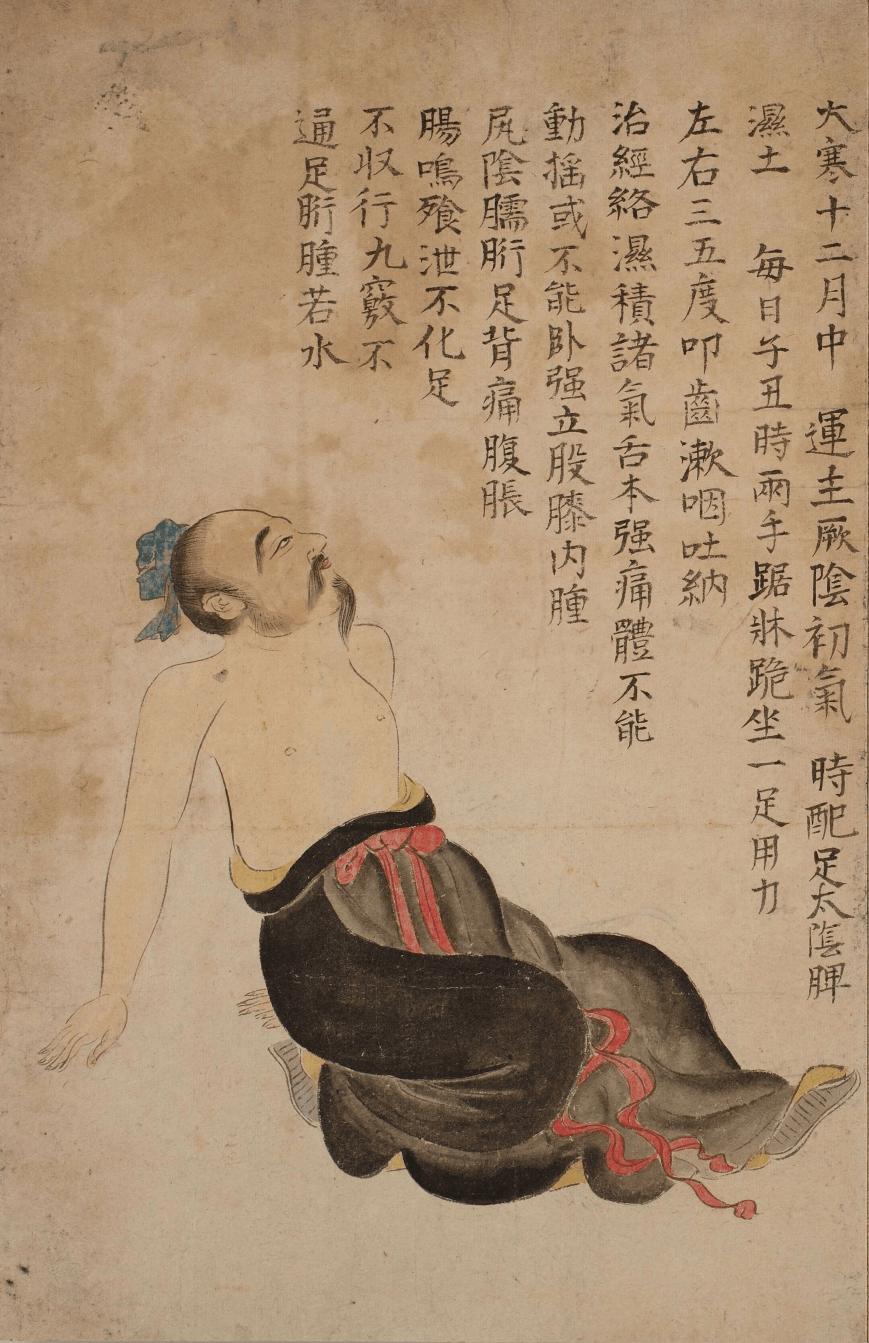 大寒十二月中　運主厥陰初氣　時配足太陰脾
濕土　每日子丑時兩手踞牀跪坐一足用力
左右三五度叩齒漱咽吐納
治經絡濕積諸氣舌本强痛體不能
動搖或不能卧强立股膝内腫
尻陰臑胻足背痛腹脹
腸鳴飱泄不化足
不収行九竅不
通足胻腫若水